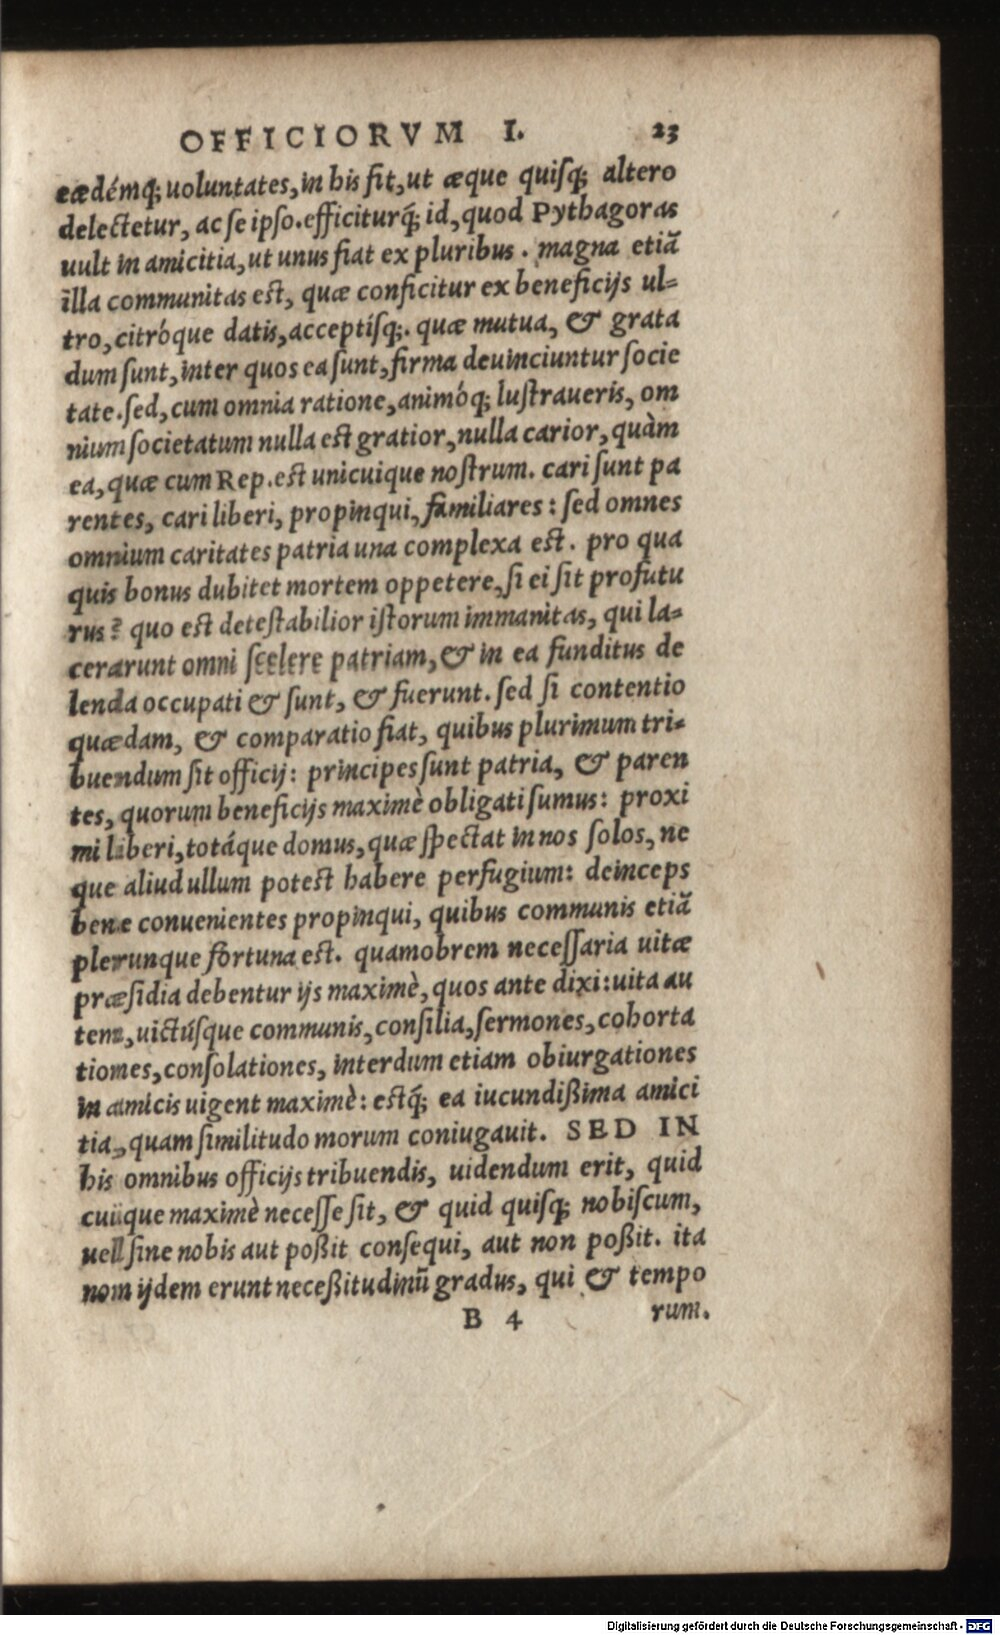 OFFICIORVM I. 23
eædémq; uoluntates, in his fit, ut æque quiſq; altero
delectetur, ac ſe ipſo. efficiturq́; id, quod Pythagoras
uult in amicitia, ut unus fiat ex pluribus. magna etiã
illa communitas est, quæ conficitur ex beneficijs ul-
tro, citróque datis, acceptiſq;. quæ mutua, & grata
dum ſunt, inter quos ea ſunt, firma deuinciuntur ſocie
tate. ſed, cum omnia ratione, animóq; luſtraueris, om
nium ſocietatum nulla est gratior, nulla carior, quàm
ea, quæ cum Rep. est unicuique noſtrum. cari ſunt pa
rentes, cari liberi, propinqui, familiares: ſed omnes
omnium caritates patria una complexa est. pro qua
quis bonus dubitet mortem oppetere, ſi ei ſit profutu
rus? quo est deteſtabilior iſtorum immanitas, qui la-
cerarunt omni ſcelere patriam, & in ea funditus de
lenda occupati & ſunt, & fuerunt. ſed ſi contentio
quædam, & comparatio fiat, quibus plurimum tri-
buendum ſit officij: principes ſunt patria, & paren
tes, quorum beneficijs maximè obligati ſumus: proxi
mi liberi, totáque domus, quæ ſpectat in nos ſolos, ne
que aliud ullum potest habere perfugium: deinceps
bene conuenientes propinqui, quibus communis etiã
plerunque fortuna est. quamobrem neceſſaria uitæ
præſidia debentur ijs maximè, quos ante dixi: uita au
tem, uictúſque communis, conſilia, ſermones, cohorta
tiones, conſolationes, interdum etiam obiurgationes
in amicis uigent maximè: estq́; ea iucundißima amici
tia, quam ſimilitudo morum coniugauit. SED IN
his omnibus officijs tribuendis, uidendum erit, quid
cuique maximè neceſſe ſit, & quid quiſq; nobiſcum,
uel ſine nobis aut poßit conſequi, aut non poßit. ita
non ijdem erunt neceßitudinũ gradus, qui & tempo
B 4 rum.
Digitalisierung gefördert durch die Deutsche Forschungsgemeinschaft - DFG